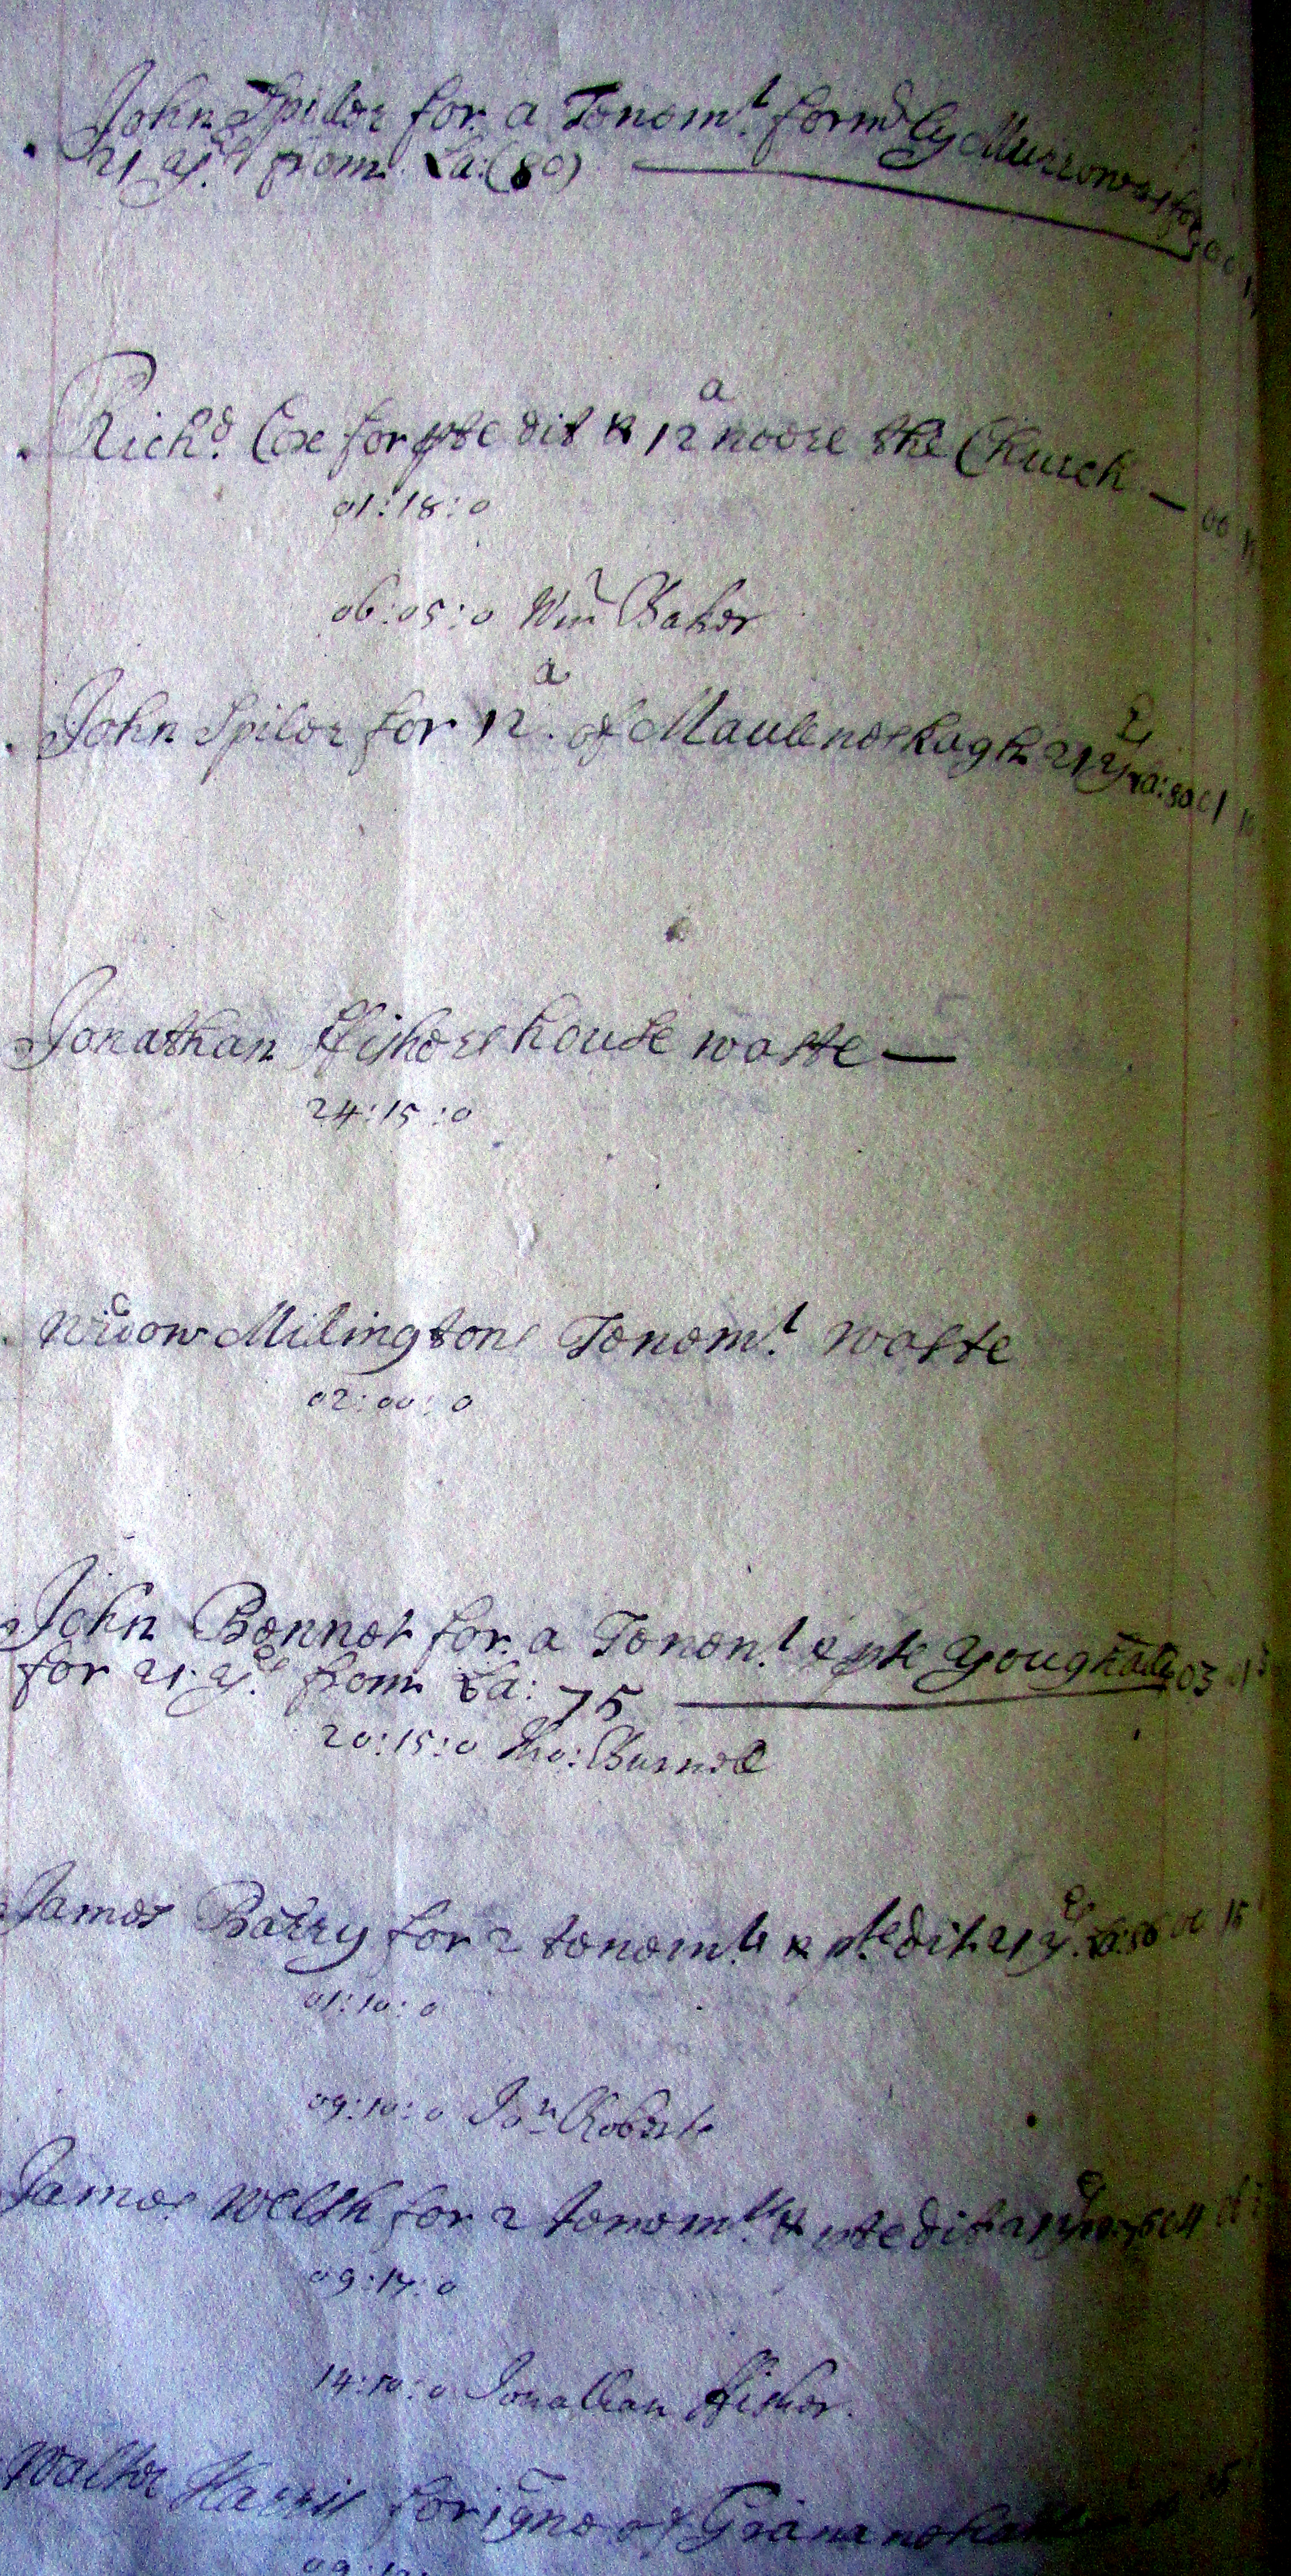 John Spiler for a Tenem.t form.dly Murrowes for
21 y.rs from La:(80)
Rich.d Cox for pte dit & 12 a noore the Church — 00
01:18:0
06:05:0 Wm Baker
John Spiler for 12 a. of Maulenoskagh 21 y.rs La:80 01
Jonathan ffishers house waste —
24:15:0
Widow Milingtons Tenem.t waste
02:00:0
John Bennet for a Tenem.t & pte Youghals 03
for 21 y.rs from La: 75
20:15:0 Tho: Burnell
James Barry for 2 tenem.ts & pte dit 21 y.rs 00 15
01:10:0
09:10:0 Jon Roberts
James Welsh for 2 tenem.ts & pte dit 21
09:17:0
14:10:0 Jonathan ffisher.
Walter Harris for gne of